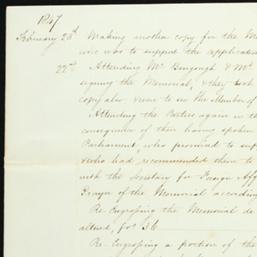 1847
February 20th Making another copy for the Me
who was to support the application
22nd Attending Mr Bingough & Mr
signing the Memorial, & they
copy also
Attending the Parties again in th
consequence of their having spoken
Parliament, who promised to sup
& who had recommended them to
with the Secretary for Foreign Aff
Prayer of the Memorial according
Re-Engrossing the Memorial
altered, for
Re-Engrossing a portion of the